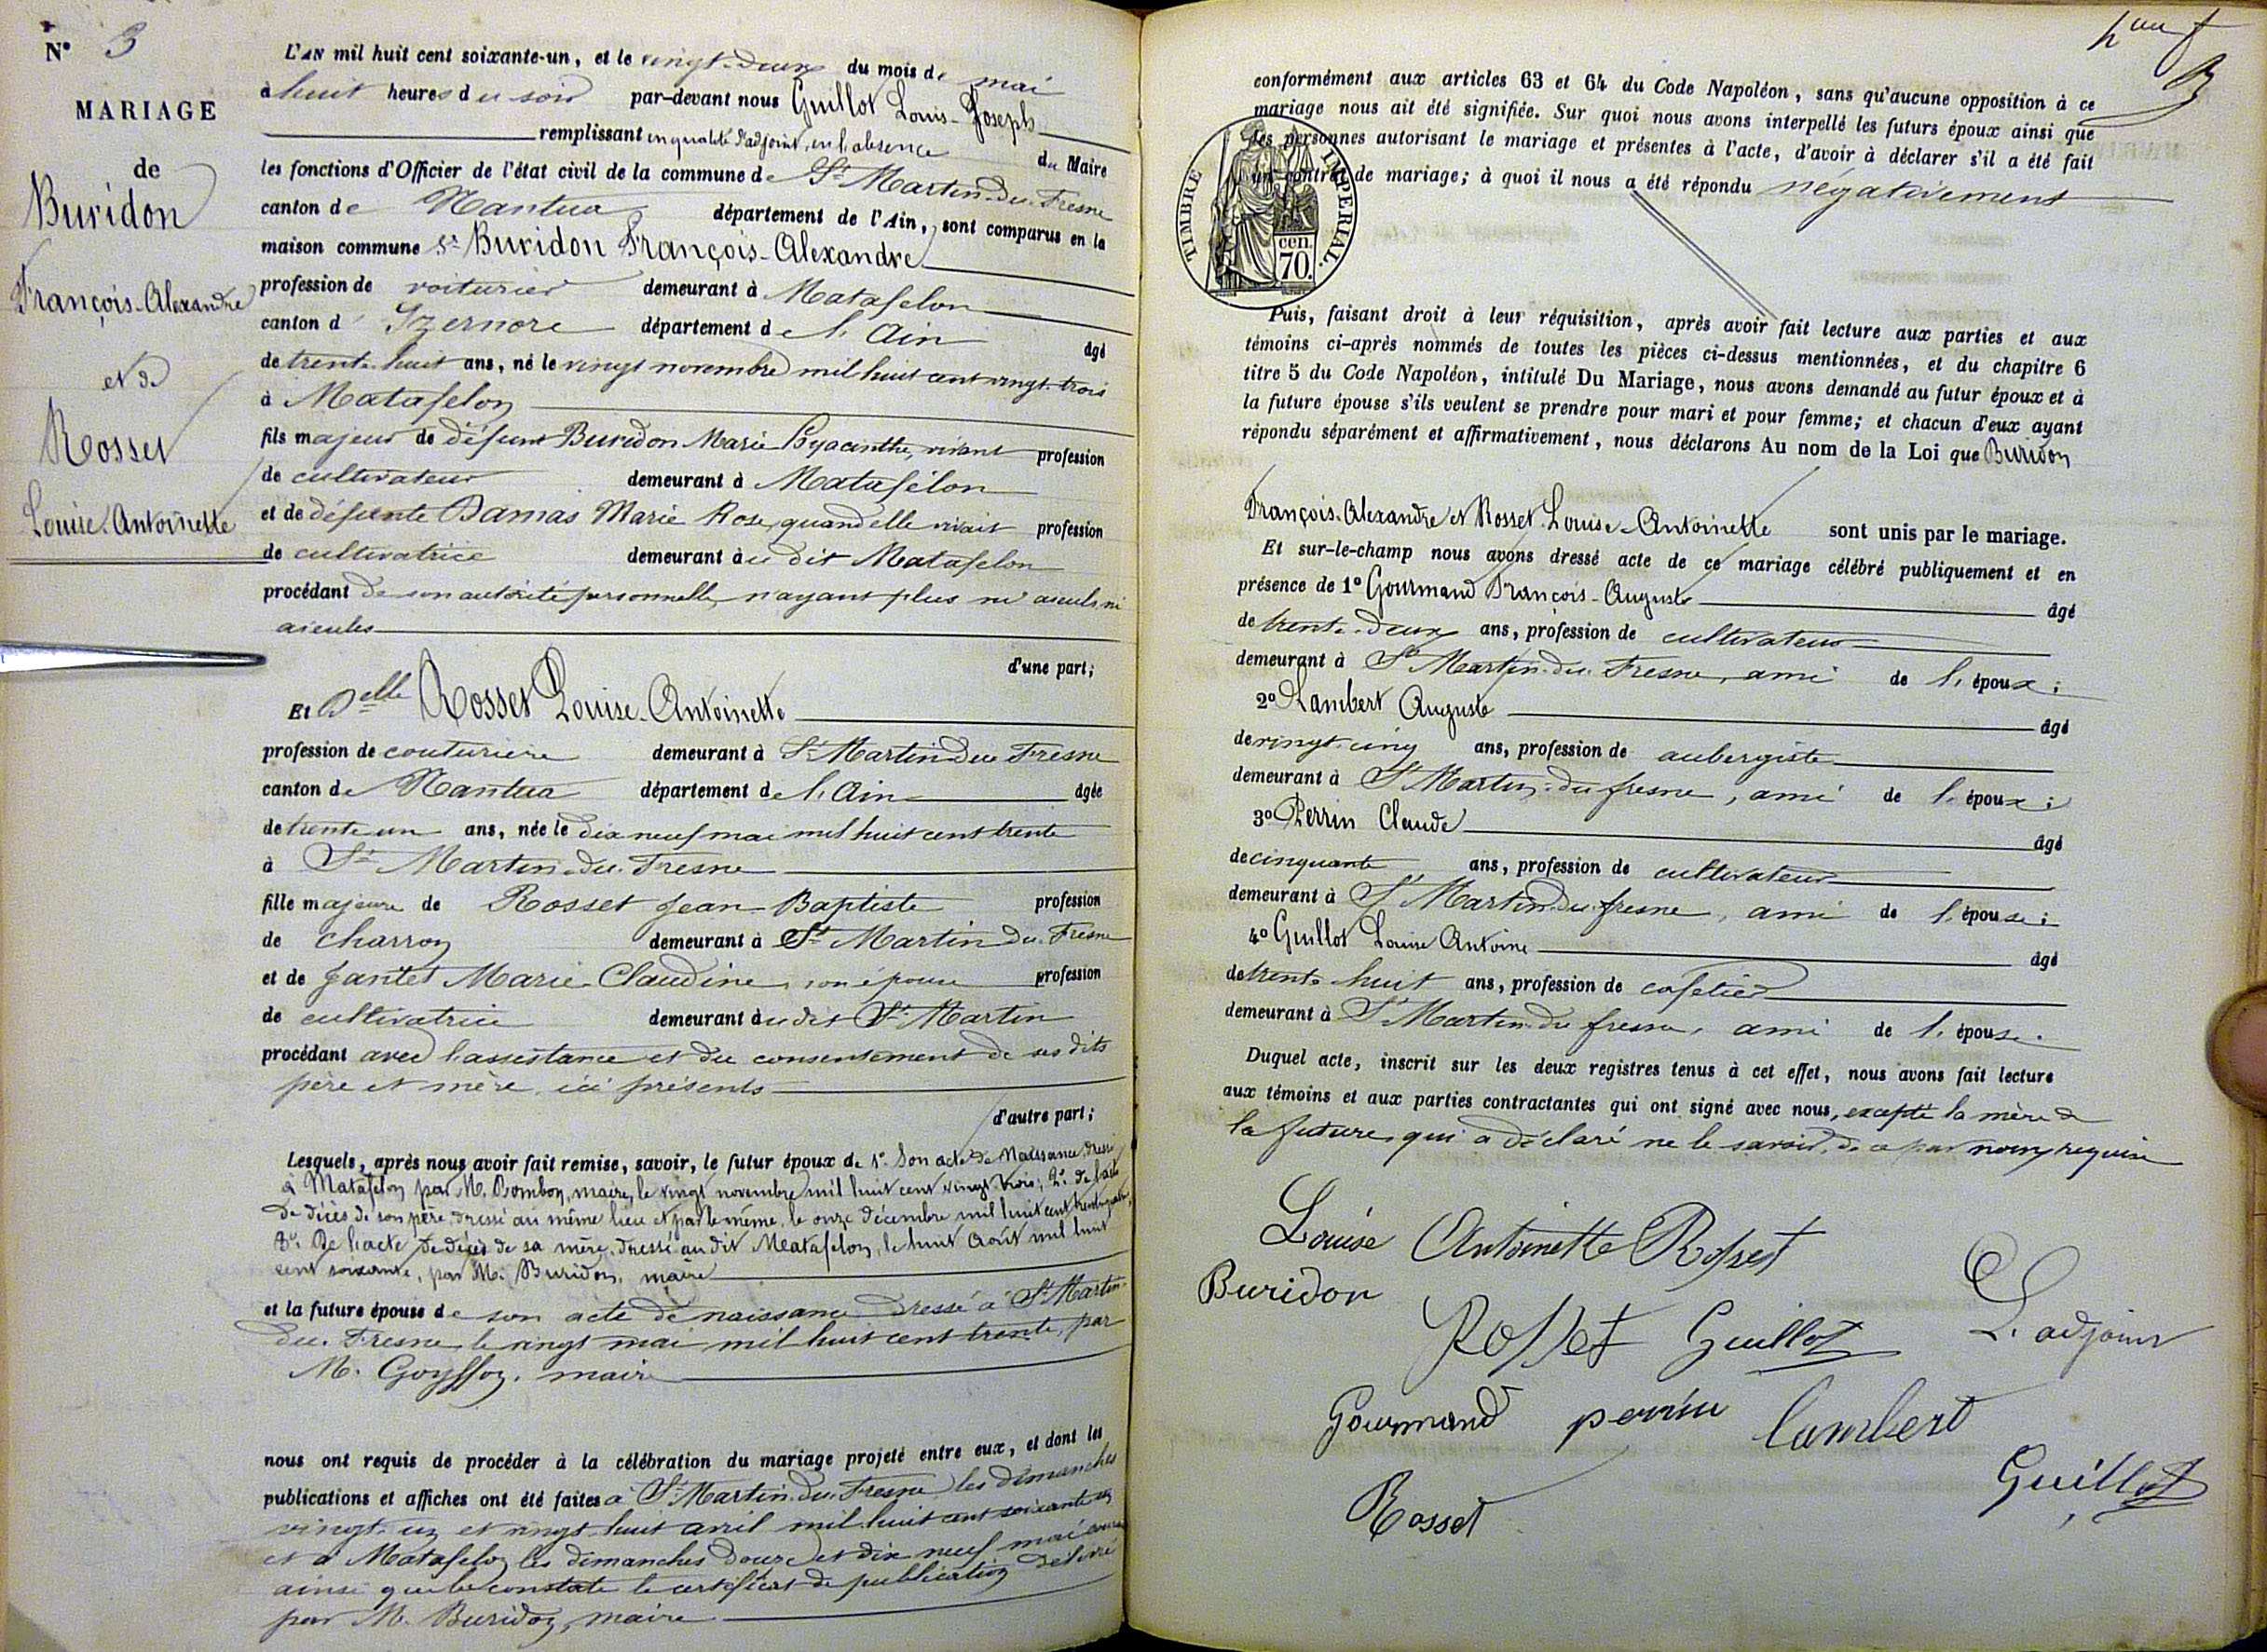 N° 3
MARIAGE
de
Buridon
François-Alexandre
et de
Rosset
Louise-Antoinette
L'AN mil huit cent soixante-un, et le vingt-deux du mois de mai
à huit heures du soir par-devant nous Guillot Louis-Joseph
remplissant en qualité d'adjoint, en l'absence du Maire
les fonctions d'Officier de l'état civil de la commune de St Martin-du-Fresne
canton de Nantua département de l'Ain, sont comparus en la
maison commune Sr Buridon François-Alexandre
profession de voiturier demeurant à Matafelon
canton d'Izernore département de l'Ain âgé
de trente-huit ans, né le vingt novembre mil huit cent vingt-trois
à Matafelon
fils majeur de défunt Buridon Marie Hyacinthe, vivant profession
de cultivateur demeurant à Matafélon
et de défunte Damas Marie Rose, quand elle vivait profession
de cultivatrice demeurant au dit Matafelon
procédant de son autorité personnelle, n'ayant plus ni aïeuls, ni
aïeules
d'une part;
Et Delle Rosset Louise-Antoinette
profession de couturière demeurant à St Martin du Fresne
canton de Nantua département de l'Ain âgée
de trente un ans, née le dix neuf mai mil huit cent trente
à St Martin-du-Fresne
fille majeure de Rosset Jean-Baptiste profession
de charron demeurant à St Martin du Fresne
et de Jantet Marie-Claudine, son épouse profession
de cultivatrice demeurant au dit St Martin
procédant avec l'assistance et du consentement de ses dits
père et mère, ici présents
d'autre part;
Lesquels, après nous avoir fait remise, savoir, le futur époux de 1° Son acte de Naissance, dressé
à Matafelon par M. Bombon, maire, le vingt novembre mil huit cent vingt-trois; 2° de l'acte
de décès de son père, dressé au même lieu et par le même, le onze décembre mil huit cent trente-quatre;
3° De l'acte de décès de sa mère, dressé au dit Matafelon, le huit Août mil huit
cent soixante, par M. Buridon, maire
et la future épouse de son acte de naissance dressé à St Martin-
du-Fresne, le vingt mai mil huit cent trente, par
M. Goyffon, maire
nous ont requis de procéder à la célébration du mariage projeté entre eux, et dont les
publications et affiches ont été faites à St Martin-du-Fresne les dimanches
vingt-un et vingt-huit avril mil huit cent soixante un
et à Matafelon les dimanches douze et dix neuf mai courant
ainsi que le constate le certificat de publication délivré
par M. Buridon, maire
conformément aux articles 63 et 64 du Code Napoléon, sans qu'aucune opposition à ce
mariage nous ait été signifiée. Sur quoi nous avons interpellé les futurs époux ainsi que
les personnes autorisant le mariage et présentes à l'acte, d'avoir à déclarer s'il a été fait
un contrat de mariage; à quoi il nous a été répondu négativement
TIMBRE IMPERIAL.
70. cen.
Puis, faisant droit à leur réquisition, après avoir fait lecture aux parties et aux
témoins ci-après nommés de toutes les pièces ci-dessus mentionnées, et du chapitre 6
titre 5 du Code Napoléon, intitulé Du Mariage, nous avons demandé au futur époux et à
la future épouse s'ils veulent se prendre pour mari et pour femme; et chacun d'eux ayant
répondu séparément et affirmativement, nous déclarons Au nom de la Loi que Buridon
François-Alexandre et Rosset Louise-Antoinette sont unis par le mariage.
Et sur-le-champ nous avons dressé acte de ce mariage célébré publiquement et en
présence de 1° Gourmand François-Auguste âgé
de trente-deux ans, profession de cultivateur
demeurant à St Martin-du-Fresne, ami de l'époux;
2° Lambert Auguste âgé
de vingt-cinq ans, profession de aubergiste
demeurant à St Martin-du-fresne, ami de l'époux;
3° Perrin Claude âgé
de cinquante ans, profession de cultivateur
demeurant à St Martin-du-fresne, ami de l'épouse;
4° Guillot Louis Antoine âgé
de trente huit ans, profession de cafetier
demeurant à St Martin-du-fresne, ami de l'épouse.
Duquel acte, inscrit sur les deux registres tenus à cet effet, nous avons fait lecture
aux témoins et aux parties contractantes qui ont signé avec nous, excepté la mère de
la future, qui a déclaré ne le savoir, de ce par nous requise
Louise Antoinette Rosset
Buridon
Rosset Guillot L'adjoint
Gourmand perrin lambert
Rosset Guillot